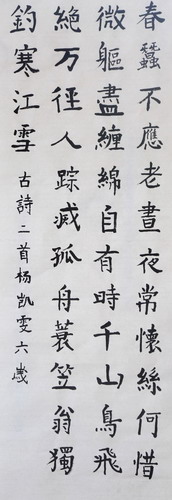 春蠶不應老晝夜常懷絲何惜
微軀盡纏綿自有時千山鳥飛
絕万徑人踪滅孤舟蓑笠翁獨
釣寒江雪
古詩二首杨凯雯六歲